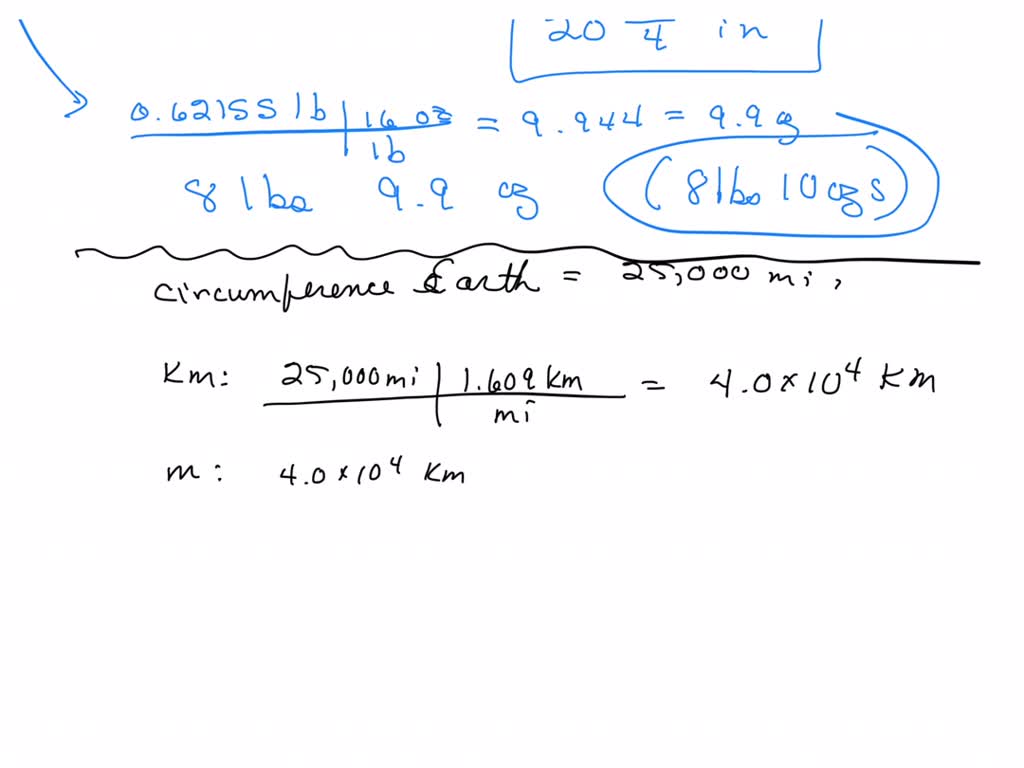 20 — 4 in
0.62155 lb | 16 oz = 9.944 = 9.9 oz
lb
8 lbs 9.9 oz (8 lbs 10 ozs)
circumference Earth = 25,000 mi,
Km: 25,000 mi | 1.609 Km = 4.0 × 10⁴ Km
mi
m: 4.0 × 10⁴ Km